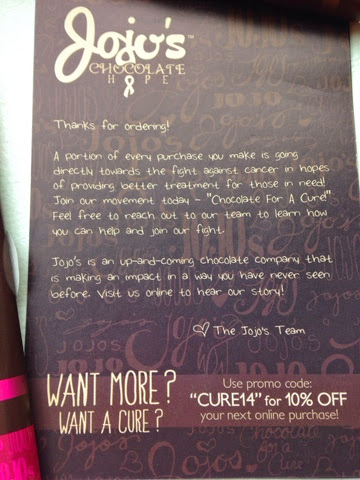 Jojo's™
CHOCOLATE
HOPE
Thanks for ordering!
A portion of every purchase you make is going
directly towards the fight against cancer in hopes
of providing better treatment for those in need!
Join our movement today - "Chocolate For A Cure!"
Feel free to reach out to our team to learn how
you can help and join our fight.
Jojo's is an up-and-coming chocolate company that
is making an impact in a way you have never seen
before. Visit us online to hear our story!
The Jojo's Team
WANT MORE?
WANT A CURE?
Use promo code:
"CURE14" for 10% OFF
your next online purchase!